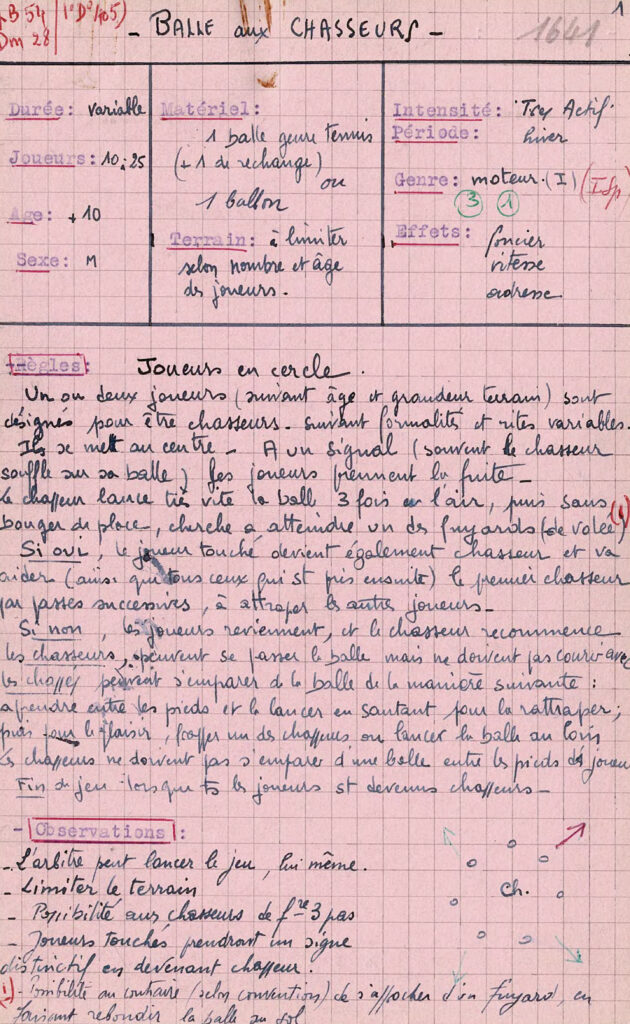 B 54 1° D° 405)
Dm 28
1
- BALLE aux CHASSEURS -
1641
Durée: variable
Joueurs: 10 à 25
Age: + 10
Sexe: M
Matériel:
1 balle genre tennis
(+ 1 de rechange)
ou
1 ballon
Terrain: à limiter
selon nombre et âge
des joueurs.
Intensité: Très Actif
Période:
hiver
Genre: moteur. (I) (I Sp)
3 1
Effets: foncier
vitesse
adresse
Règles: Joueurs en cercle.
Un ou deux joueurs (suivant âge et grandeur terrain) sont
désignés pour être chasseurs. suivant formalités et rites variables.
Ils se mett au centre - A un signal (souvent le chasseur
souffle sur sa balle) les joueurs prennent la fuite -
Le chasseur lance très vite la balle 3 fois en l'air, puis sans (1)
bouger de place, cherche à atteindre un des fuyards (de volée)
Si oui, le joueur touché devient également chasseur et va
aider (ainsi que tous ceux qui st pris ensuite) le premier chasseur
par passes successives, à attraper les autres joueurs -
Si non, les joueurs reviennent, et le chasseur recommence
les chasseurs, peuvent se passer la balle mais ne doivent pas courir avec
les chassés peuvent s'emparer de la balle de la manière suivante :
la prendre entre les pieds et la lancer en sautant pour la rattraper ;
puis pour le plaisir, un des chasseurs ou lancer la balle au loin
Les chasseurs ne doivent pas s'emparer d'une balle entre les pieds d'1 joueur
Fin du jeu lorsque ts les joueurs st devenus chasseurs -
- Observations :
- L'arbitre peut lancer le jeu, lui même.
- Limiter le terrain
- Possibilité aux chasseurs de fre 3 pas
- Joueurs touchés prendront un signe
distinctif en devenant chasseur.
Ch.
(1) - Possibilité au contraire (selon convention) de s'approcher d'un fuyard, en
faisant rebondir la balle au sol